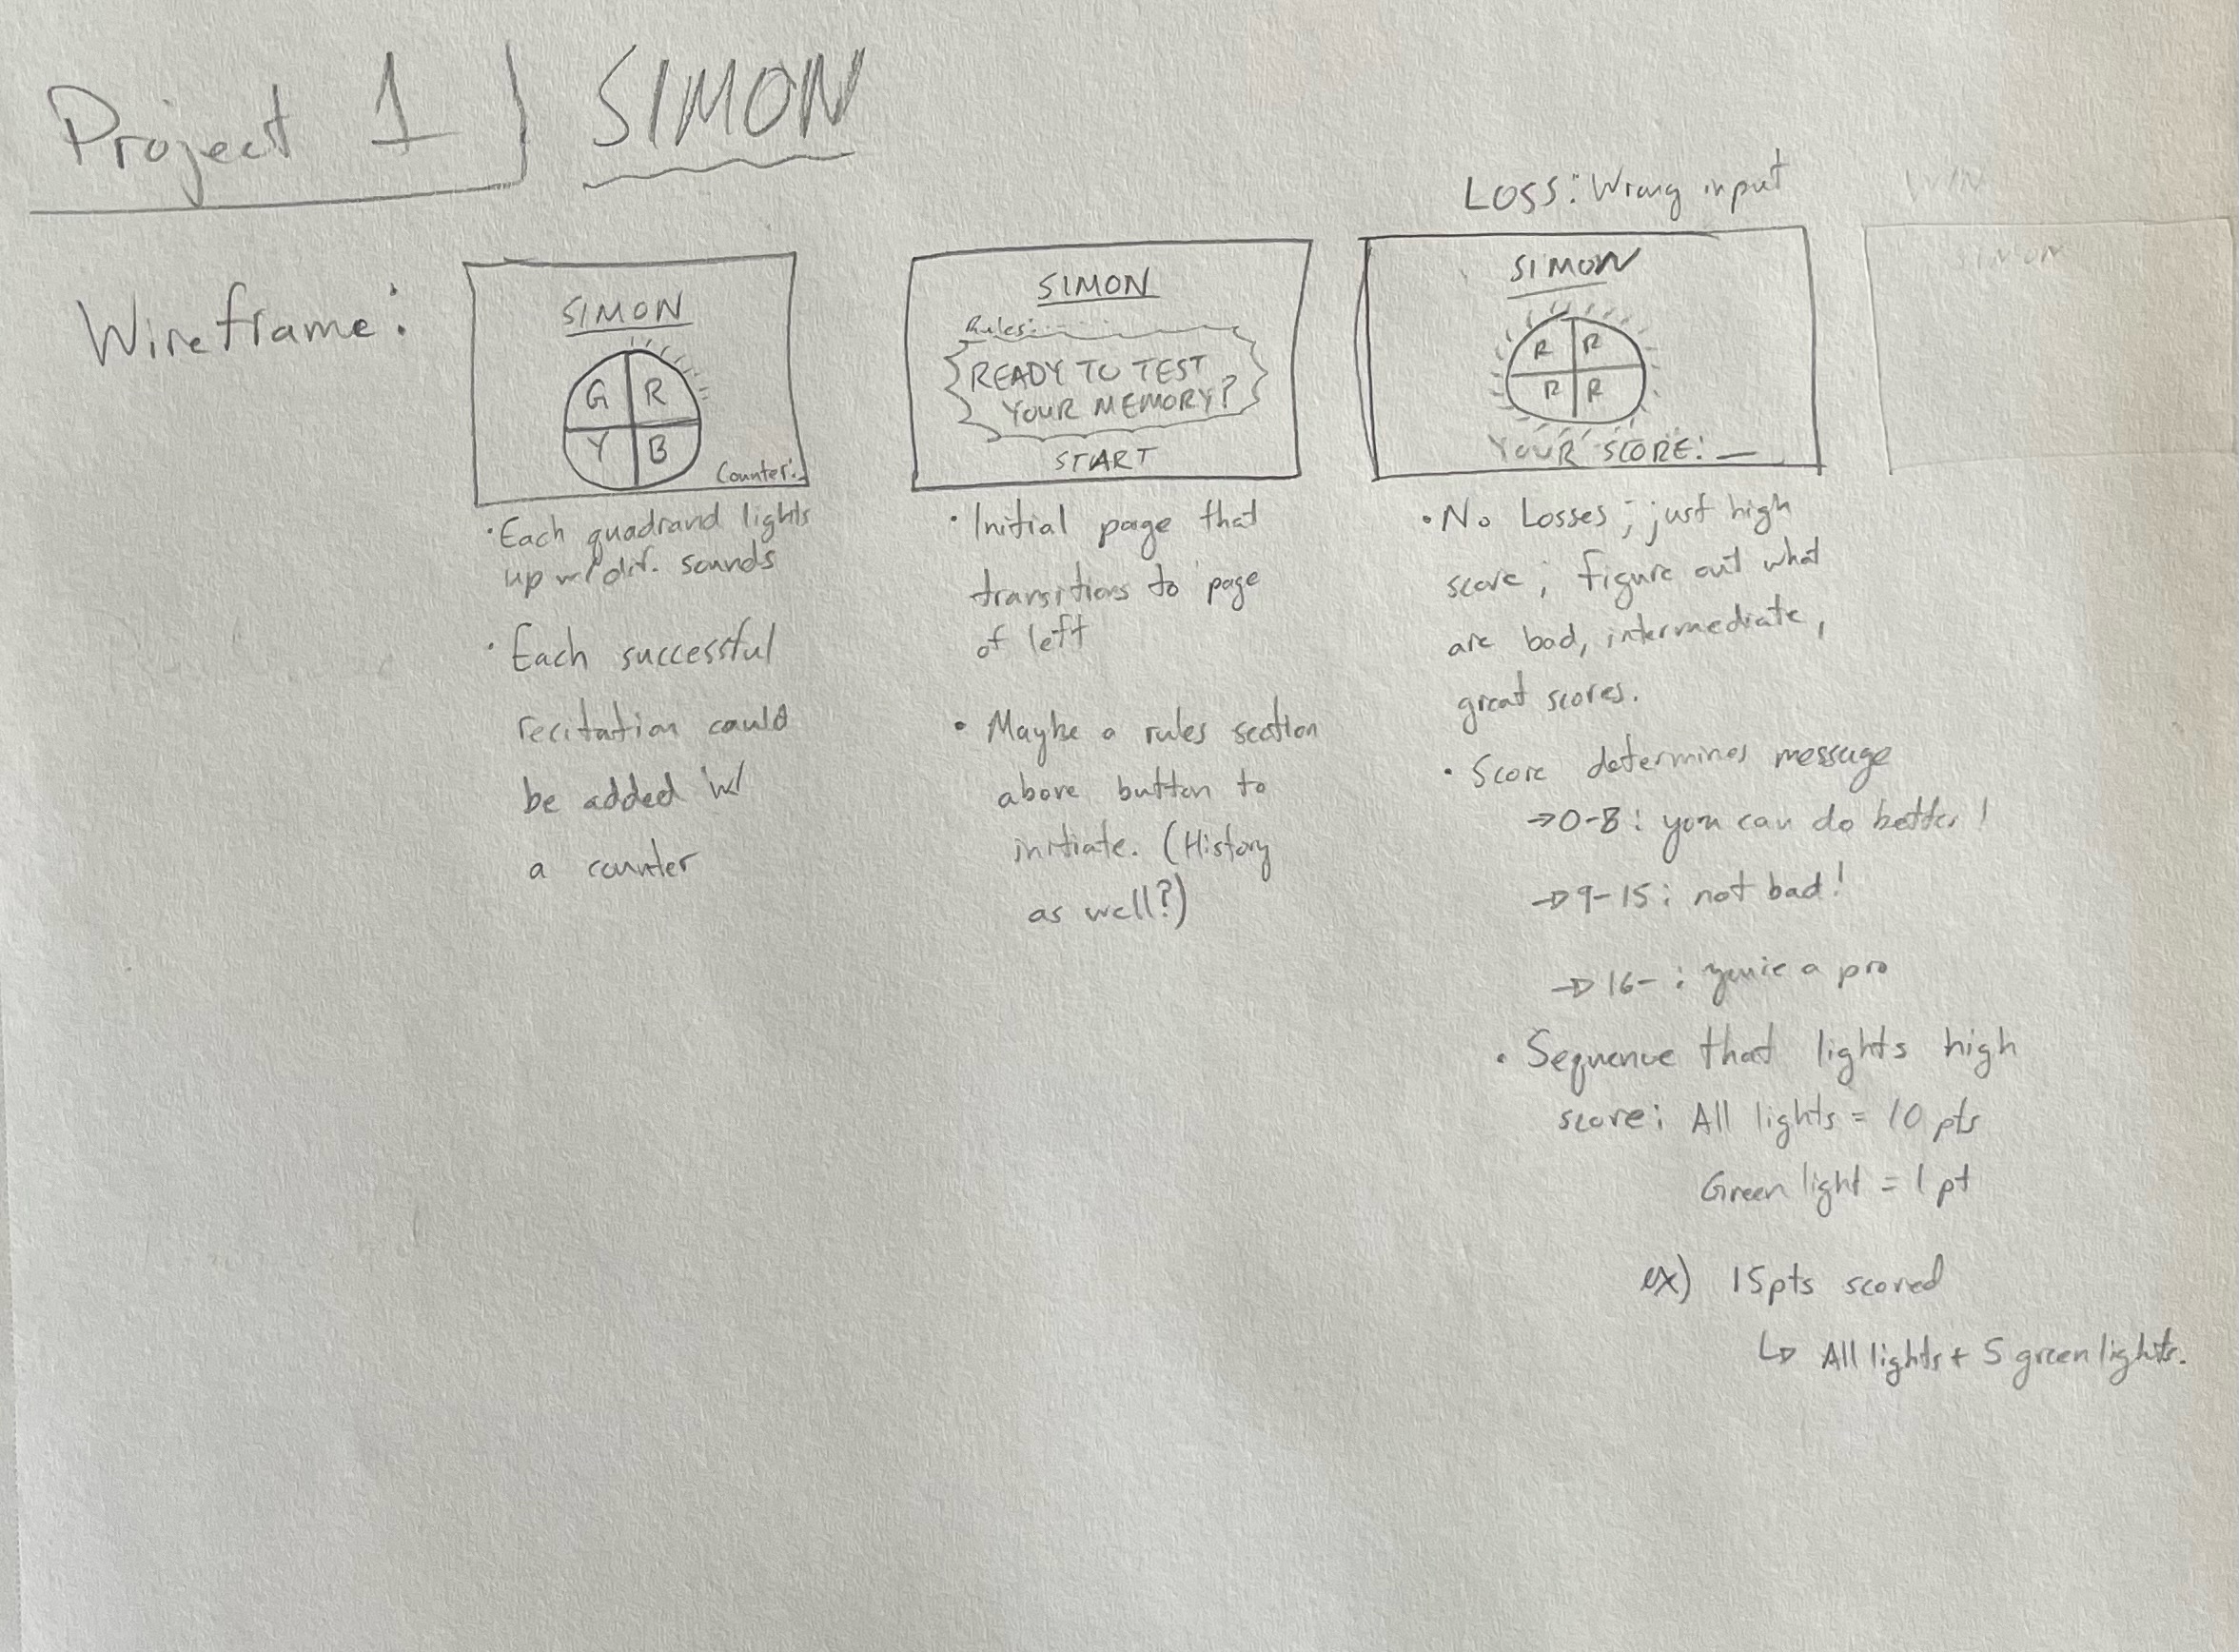 Project 1
SIMON
Wireframe:
SIMON
G R
Y B
Counter:_
• Each quadrand lights
up w/ dif. sounds
• Each successful
recitation could
be added w/
a counter
SIMON
Rules:
READY TO TEST
YOUR MEMORY?
START
• Initial page that
transitions to page
of left
• Maybe a rules section
above button to
initiate. (History
as well?)
LOSS: Wrong input
SIMON
R R
R R
YOUR SCORE: _
• No Losses; just high
score; figure out what
are bad, intermediate,
great scores.
• Score determines message
→ 0-8: you can do better!
→ 9-15: not bad!
→ 16- : you're a pro
• Sequence that lights high
score: All lights = 10 pts
Green light = 1 pt
ex) 15pts scored
↳ All lights + 5 green lights.
WIN
SIMON